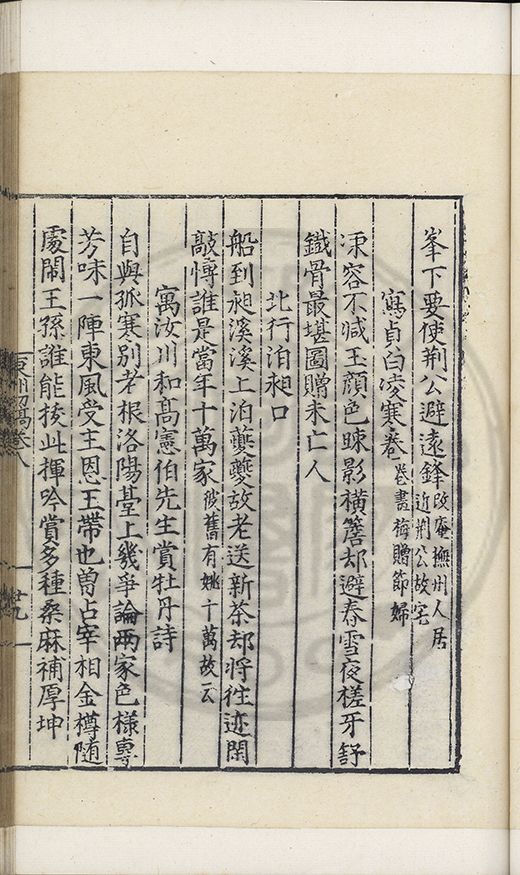 峯下要使荆公避遠鋒改庵撫州人居
近荆公故宅
寫貞白凌寒卷卷畫梅贈節婦
涷容不減玉顔色𥇦影橫簷却避春雪夜槎牙舒
鐵骨最堪圖贈未亡人
北行泊昶口
船到昶溪溪上泊夔夔故老送新茶却將往迹閑
敲愽誰是當年十萬家彼舊有姚十萬故云
寓汝川和髙憲伯先生賞牡丹詩
自與孤寒别老根洛陽臺上幾爭論兩家色様專
芳味一陣東風受主恩玉帶也曾占宰相金樽随
處閙王孫誰能挍此揮吟賞多種桑麻補厚坤
東川初稿卷八
廿九